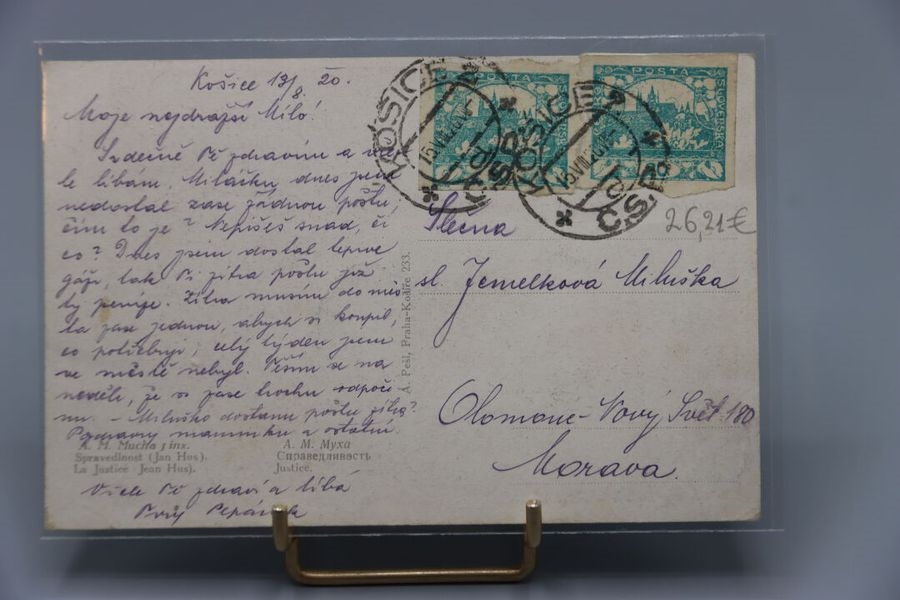 Košice 13/8. 20.
Moje nejdražší Miló.
Srdečně Tě zdravím a
le líbám. Miláčku, dnes jsem
nedostal zase žádnou poštu,
čím to je? Nepíšeš snad, či
co? Dnes jsem dostal teprve
gáži, tak Ti zítra pošlu již
ty peníze. Zítra musím do měs
ta zase jednou, abych si koupil,
co potřebuji, celý týden jsem
ve městě nebyl. Těším se na
neděli, že si zase trochu odpoči
nu. – Miluško dostanu poštu zítra?
Pozdravuj maminku a ostatní.
A. M. Mucha pinx.
Spravedlnost (Jan Hus).
La Justice Jean Hus).
А. М. Муха
Справедливость
Justice.
Vřele Tě zdraví a líbá
Tvůj Pepánek
A. Pešl, Praha-Košíře 233.
POSTA
POSTA
SLOVENSKA
KOŠICE 2
15.VIII.20
Č.S.P.
KOŠICE 2
15.VIII.20
Č.S.P.
26,21€
Slečna
sl. Jemelková Miluška
Olomouc-Nový Svět 180
Morava.